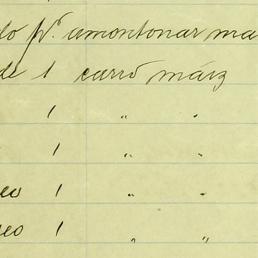 do pr. amontonar ma
de 1 carro máiz
1 " "
1 " "
eo 1 " "
eo 1 " "